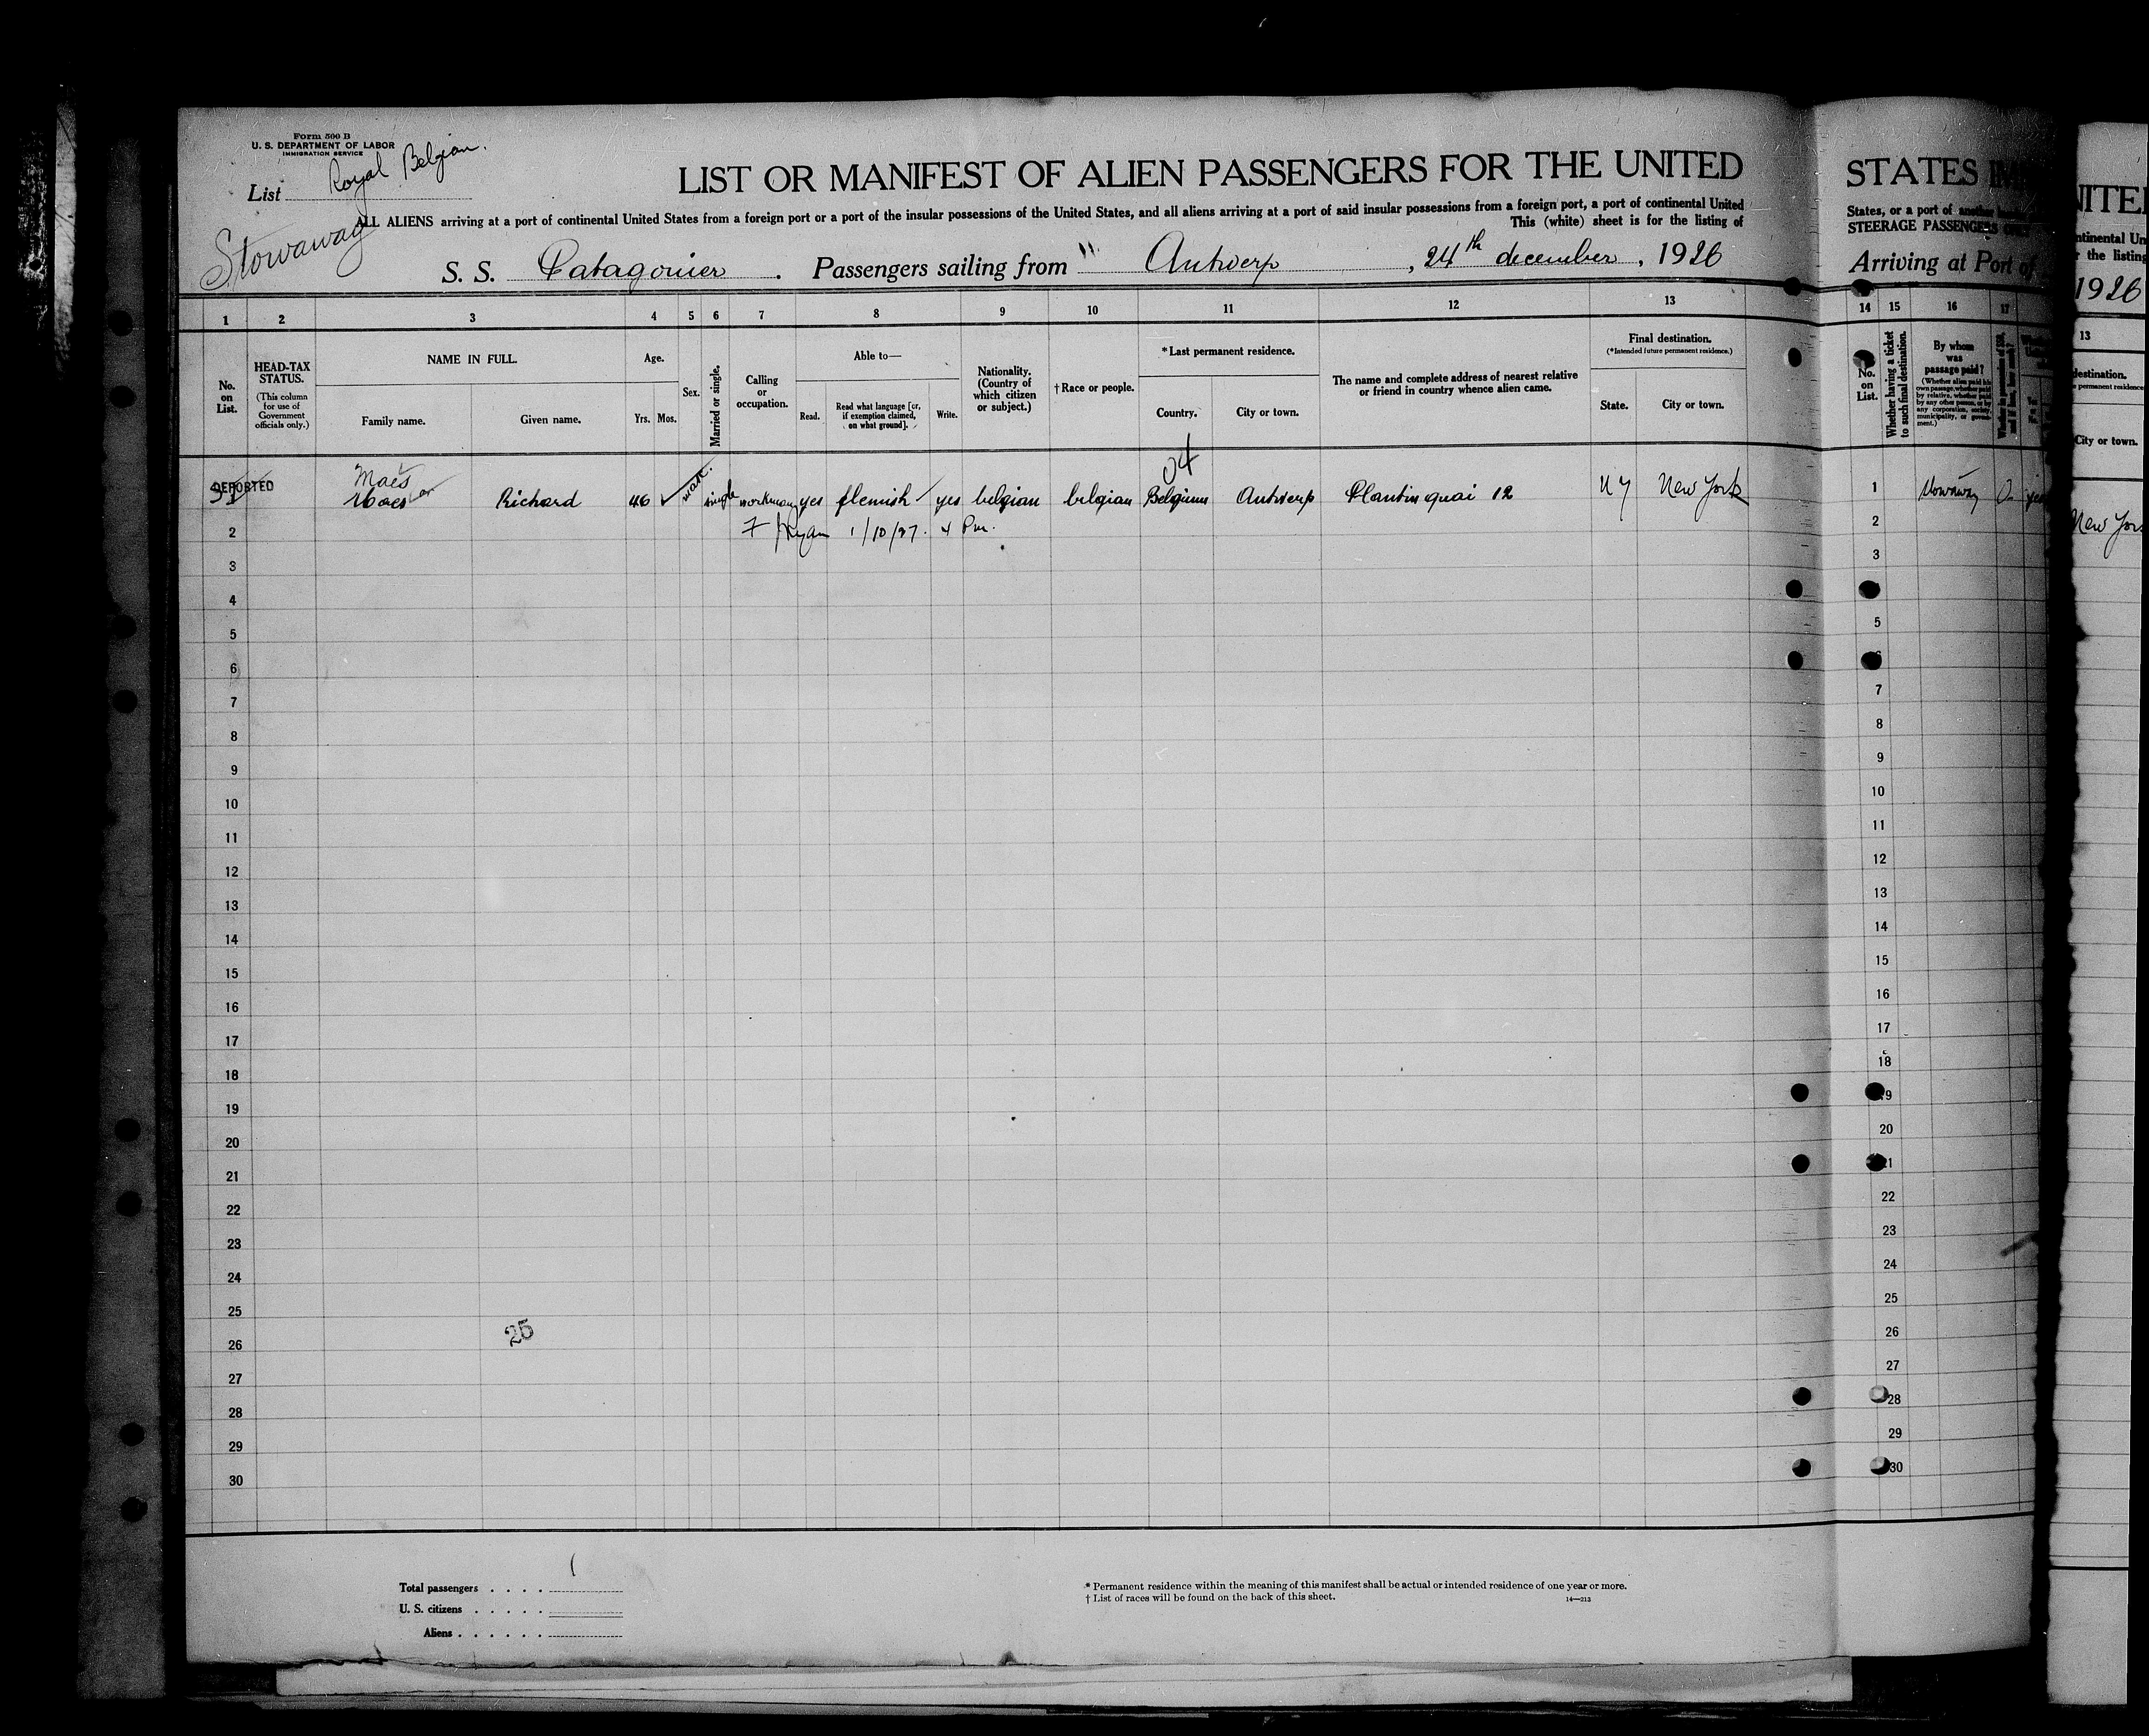 Form 500 B
U. S. DEPARTMENT OF LABOR
IMMIGRATION SERVICE
List Royal Belgian.
Stowaway
LIST OR MANIFEST OF ALIEN PASSENGERS FOR THE UNITED
ALL ALIENS arriving at a port of continental United States from a foreign port or a port of the insular possessions of the United States, and all aliens arriving at a port of said insular possessions from a foreign port, a port of continental United
This (white) sheet is for the listing of
S. S. Patagonier . Passengers sailing from Antwerp , 24th december , 1926
1 2 3 4 5 6 7 8 9 10 11 12 13
No. on List.
HEAD-TAX STATUS.
(This column for use of Government officials only.)
NAME IN FULL.
Family name. Given name.
Age.
Yrs. Mos.
Sex.
Married or single.
Calling or occupation.
Able to—
Read. Read what language [or, if exemption claimed, on what ground]. Write.
Nationality. (Country of which citizen or subject.)
† Race or people.
*Last permanent residence.
Country. City or town.
The name and complete address of nearest relative or friend in country whence alien came.
Final destination.
(*Intended future permanent residence.)
State. City or town.
04
Maes
DEPORTED Maes Richard 46 male single workman yes flemish yes belgian belgian Belgium Antwerp Plantin quai 12 NY New York
2 Ryan 1/10/27. 4 Pm.
3
4
5
6
7
8
9
10
11
12
13
14
15
16
17
18
19
20
21
22
23
24
25
26 25
27
28
29
30
Total passengers . . . . 1
U. S. citizens . . . . .
Aliens . . . . . .
* Permanent residence within the meaning of this manifest shall be actual or intended residence of one year or more.
† List of races will be found on the back of this sheet.
14—213
STATES
States, or a port of another
STEERAGE PASSENGERS
Arriving at Port of
14 15 16 17
No. on List.
Whether having a ticket to such final destination.
By whom was passage paid?
1 Stowaway
2
3
5
7
8
9
10
11
12
13
14
15
16
17
18
19
20
21
22
23
24
25
26
27
28
29
30
NITED
ntinental Un
the listing
1926
13
destination.
s permanent residence
City or town.
New York